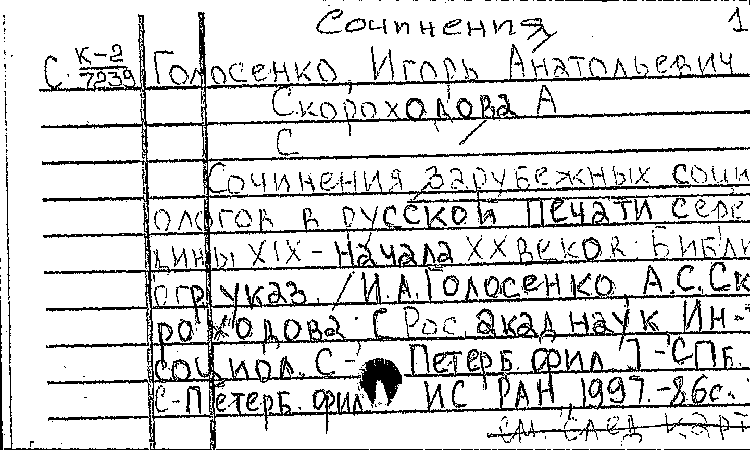 Сочинения 1
С. К-2 Голосенко, Игорь Анатольевич
7239
Скороходова А
С
Сочинения зарубежных соци
ологов в русской печати сере
дины XIX – начала XX веков. Библи
огр указ. / И.А.Голосенко, А.С.Ск
роходова. [Рос. акад наук Ин-т
социол. С- Петерб. фил.] -СПб.
С-Петерб. фил ИС РАН, 1997.-86с.
см. след карт